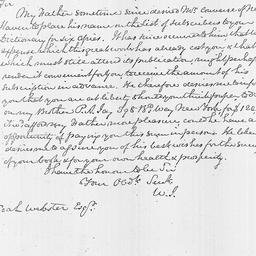 Sir
My Father sometime since desired Mr. Converse of New
Haven to place his name on the list of subscribers to your
Dictionary for six copies. It has since occurred to him that the
expense which this great work has already cost you & that
which must still attend its publication, might perhaps
render it convenient for you, to receive the amount of his
subscription in advance. He therefore desires me to inform
you that you are at liberty to draw upon their proper to do
on my Brother P. A. Jay, of Broadway, New York for $120
would afford my Father more pleasure could he have an
opportunity of paying you this sum in person. He likewise
desires me to assure you of his best wishes for the success
of your book, & for your own health & prosperity.
I have the honor to be Sir
Your Obdt. Servt.
W. J.
Noah Webster Esqr.